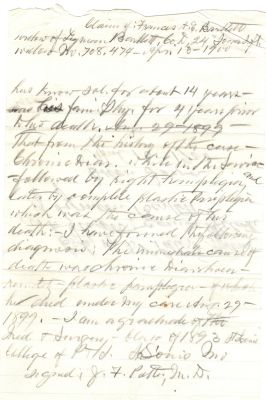 Claim of Frances A. E. Bartlett
widow of Lyman Bartlett, Co. K, 24
widow's No. 708.474 - Apr. 13 - 1900
has know sol. for about 14 years
was his fam. Phy. for 4 years prior
to his death, Aug. 29 - 1899
that from the history of the case -
Chronic diar. while in the service
followed by right hemiplegia, and
later by complete plastic paraplegia
which was the cause of his
death: - I have formed the above
diagnosis; The immediate cause of
death was chronic diarrhoea -
result - plastic paraplegia - of which
he died under my care Aug. 29 -
1899. - I am a graduate of the
Med & Surgery, - class of 1893
College of P. & S. St Louis Mo
Signed, J. F. M.D.